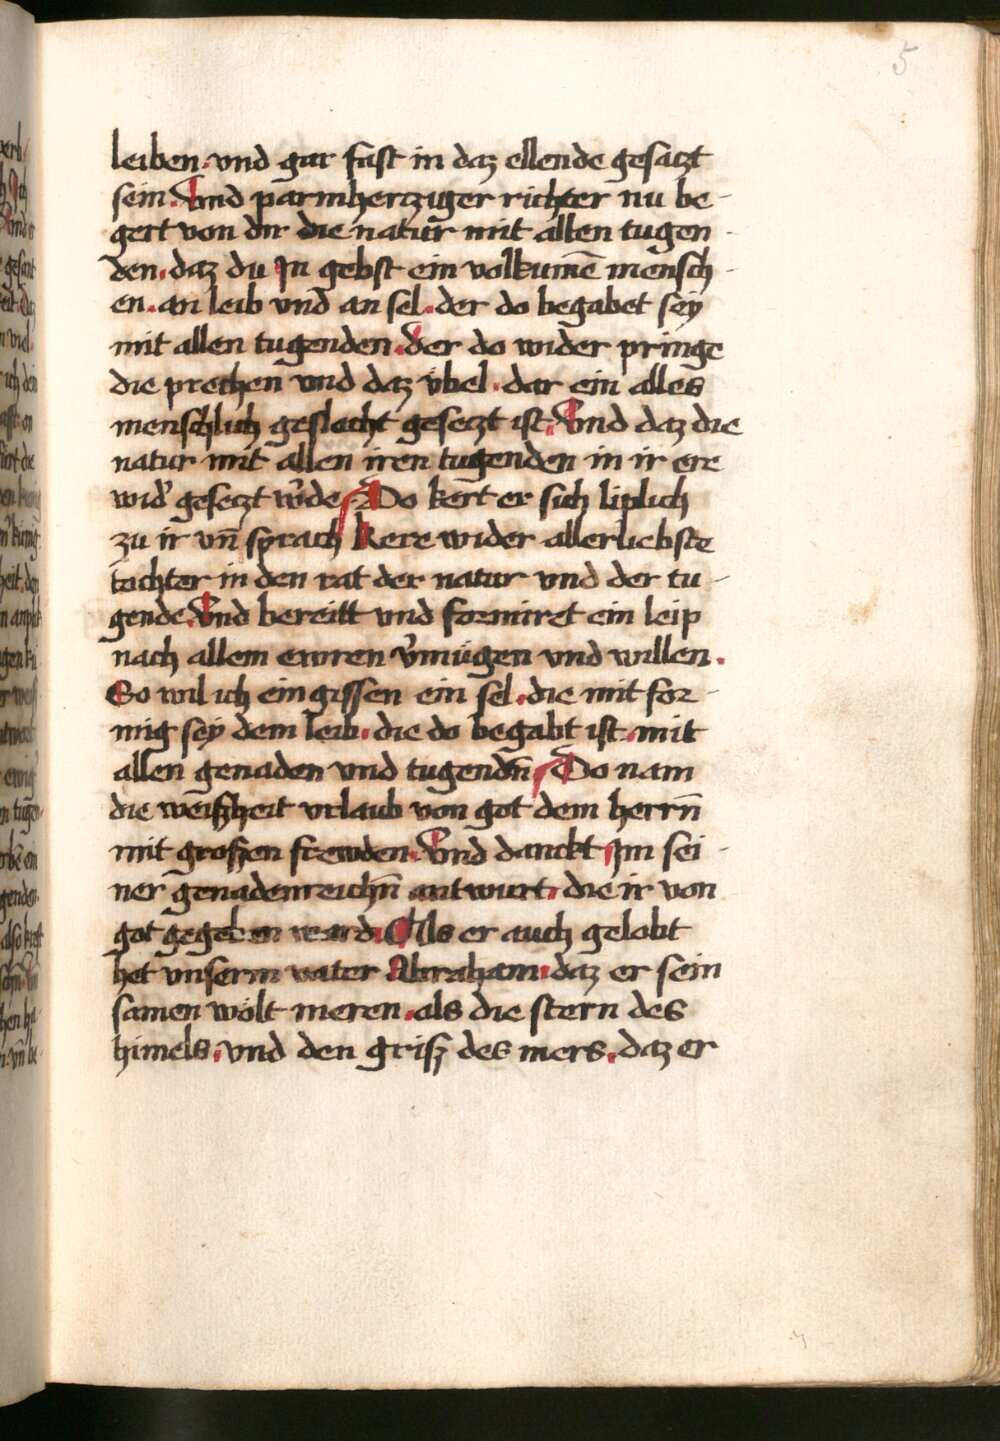 5
leiben. vnd gar fast in daz ellende gesaczt
sein. Vnd parmhercziger richter nu be-
gert von dir die natur mit allen tugen-
den. daz du Jn gebst ein volkumē mensch-
en. an leib vnd an sel. der do begabet sey
mit allen tugenden. der do wider pringe
die prechen vnd daz vbel. dar ein alles
menschlich geslecht geseczt ist. Vnd daz die
natur mit allen iren tugenden in ir ere
wid' gesetzt w'de. Do kert er sich liplich
zu ir vn̄ sprach Kere wider allerliebste
tochter in den rat der natur vnd der tu-
gende. Vnd bereitt vnd formiret ein leip
nach allem ewren v'mügen vnd willen.
So wil ich ein gissen ein sel. die mit for-
mig sey dem leib. die do begabt ist. mit
allen genaden vnd tugendn̄. Do nam
die weißheit vrlaub von got dem herrn̄
mit großen frewden. Vnd danckt Jm sei-
ner genadenreichn̄ antwurt. die ir von
got gegeben ward. Als er auch gelobt
het vnserm vater Abraham. daz er sein
samen wölt meren. als die stern des
himels. vnd den griß des mers. daz er